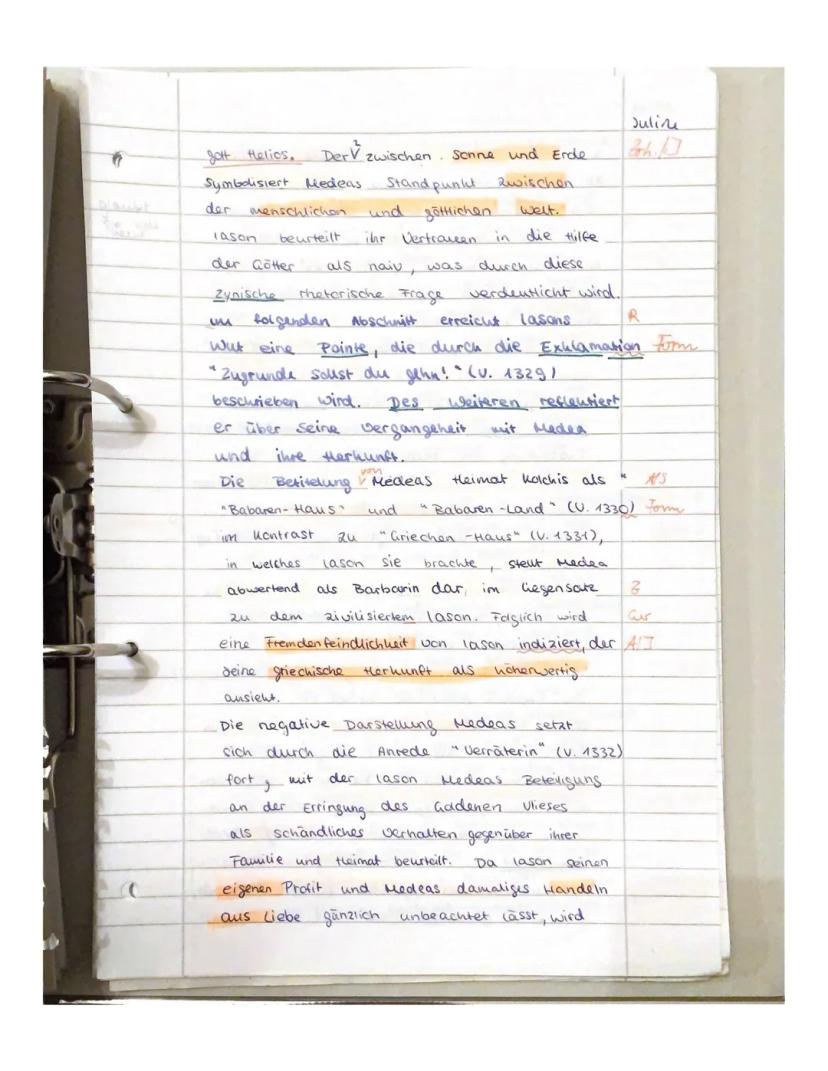 Juline
gott Helios. Der √² zwischen Sonne und Erde
Symbolisiert Medeas Standpunkt zwischen
der menschlichen und göttlichen Welt.
Iason beurteilt ihr Vertrauen in die Hilfe
der Götter als naiv, was durch diese
zynische rhetorische Frage verdeutlicht wird.
im folgenden Abschnitt erreicht Iasons R
Wut eine Pointe, die durch die Exklamation Form
"Zugrunde sollst du gehn!" (V. 1329)
beschrieben wird. Des Weiteren reflektiert
er über seine Vergangeheit mit Medea
und ihre Herkunft.
von
Die Betitelung √ Medeas Heimat Kolchis als "
"Babaren-Haus" und "Babaren-Land" (V. 1330) Form
im Kontrast zu "Griechen-Haus" (V. 1331),
in welches Iason sie brachte, stellt Medea
abwertend als Barbarin dar, im Gegensatz
zu dem zivilisiertem Iason. Folglich wird
eine Fremdenfeindlichkeit von Iason indiziert, der
seine griechische Herkunft als höherwertig
ansieht.
Die negative Darstellung Medeas setzt
sich durch die Anrede "Verräterin" (V. 1332)
fort, mit der Iason Medeas Beteiligung
an der Erringung des Goldenen Vlieses
als schändliches Verhalten gegenüber ihrer
Familie und Heimat beurteilt. Da Iason seinen
eigenen Profit und Medeas damaliges Handeln
aus Liebe gänzlich unbeachtet lässt, wird